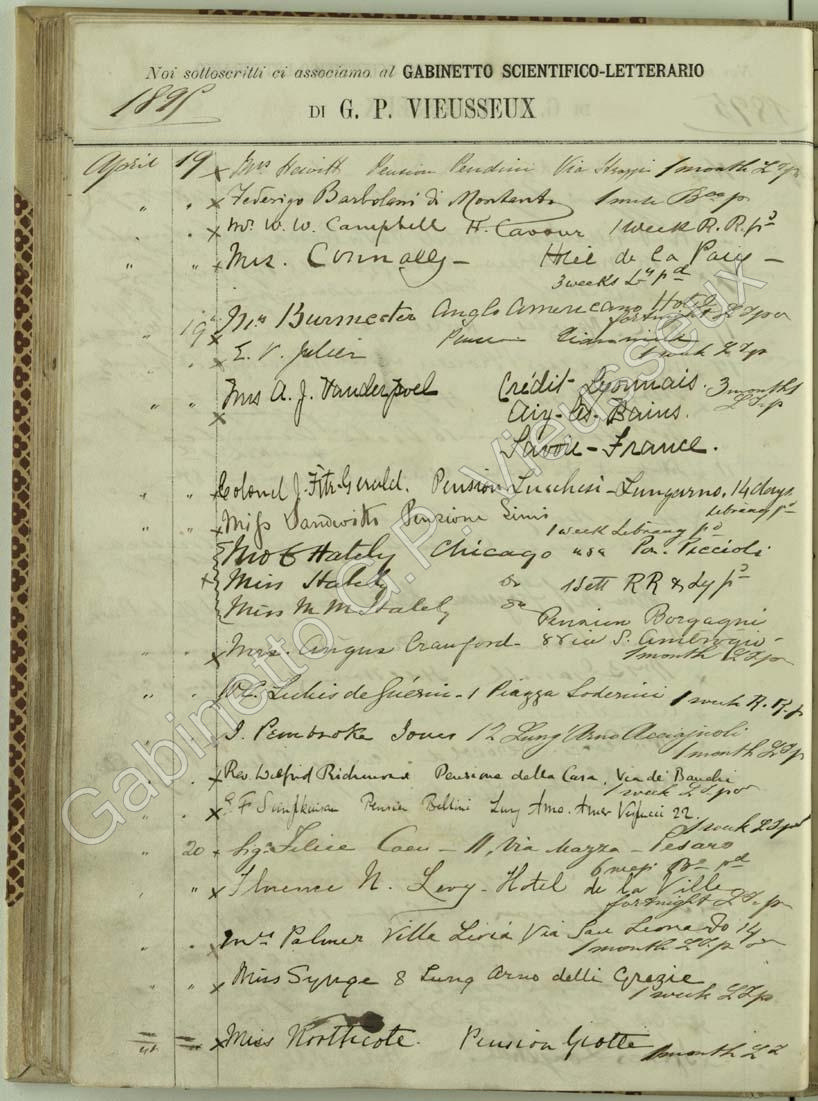 Noi sottoscritti ci associamo al GABINETTO SCIENTIFICO-LETTERARIO
1895
DI G. P. VIEUSSEUX
April 19 x Mrs Hewitt Pension Pendini Via Strozzi 1 month
" " x Federigo Barbolani di Montauto
" " x Mr. W. W. Campbell H. Cavour 1 week R. R. pd
" " x Mrs. Connally - Hotel de la Paix -
3 weeks Ly pd
" 19 x Mrs Burmester Anglo Americano Hotel
fortnight
" x E. V. Julier Pension
1 week
" " x Mrs A. J. Vanderpoel Crédit Lyonnais. 3 months
Aix-les-Bains.
Savoie - France.
" " x Colonel J. Fitz-Gerald. Pension Lucchesi - Lungarno. 14 days
Library pd
" " x Miss Pensione Simi
1 week Library pd
Hately Chicago USA Pen. Piccioli
x Miss Hately do 1 Sett RR & Ly pd
Miss M M Hately do
Pension Borgagni
" " x Mrs. Angus Craufurd - 8 Via S. Ambrogio -
1 month
" " de Guérin - 1 Piazza Soderini 1 week R. R. p
" " x J. Pembroke Jones 12 Lung'Arno Acciajuoli
1 month
" " x Rev Wilfrid Richmond Pensione della Casa, Via de' Banchi
1 week
" " x E F Simpkinson Pension Bellini Lung Arno. Amer Vespucci 22.
1 week
" 20 x Sigr Felice Caen - 11, Via Mazza - Pesaro
6 mesi pd
" " x Florence N. Levy - Hotel de la Ville
fortnight
" " x Mrs Palmer Villa Livia Via San Leonardo 14
1 month
" " x Miss Synge 8 Lung Arno delli Grazie
1 week
x Miss Northcote. Pension Giotto
1 month
Gabinetto G. P. Vieusseux